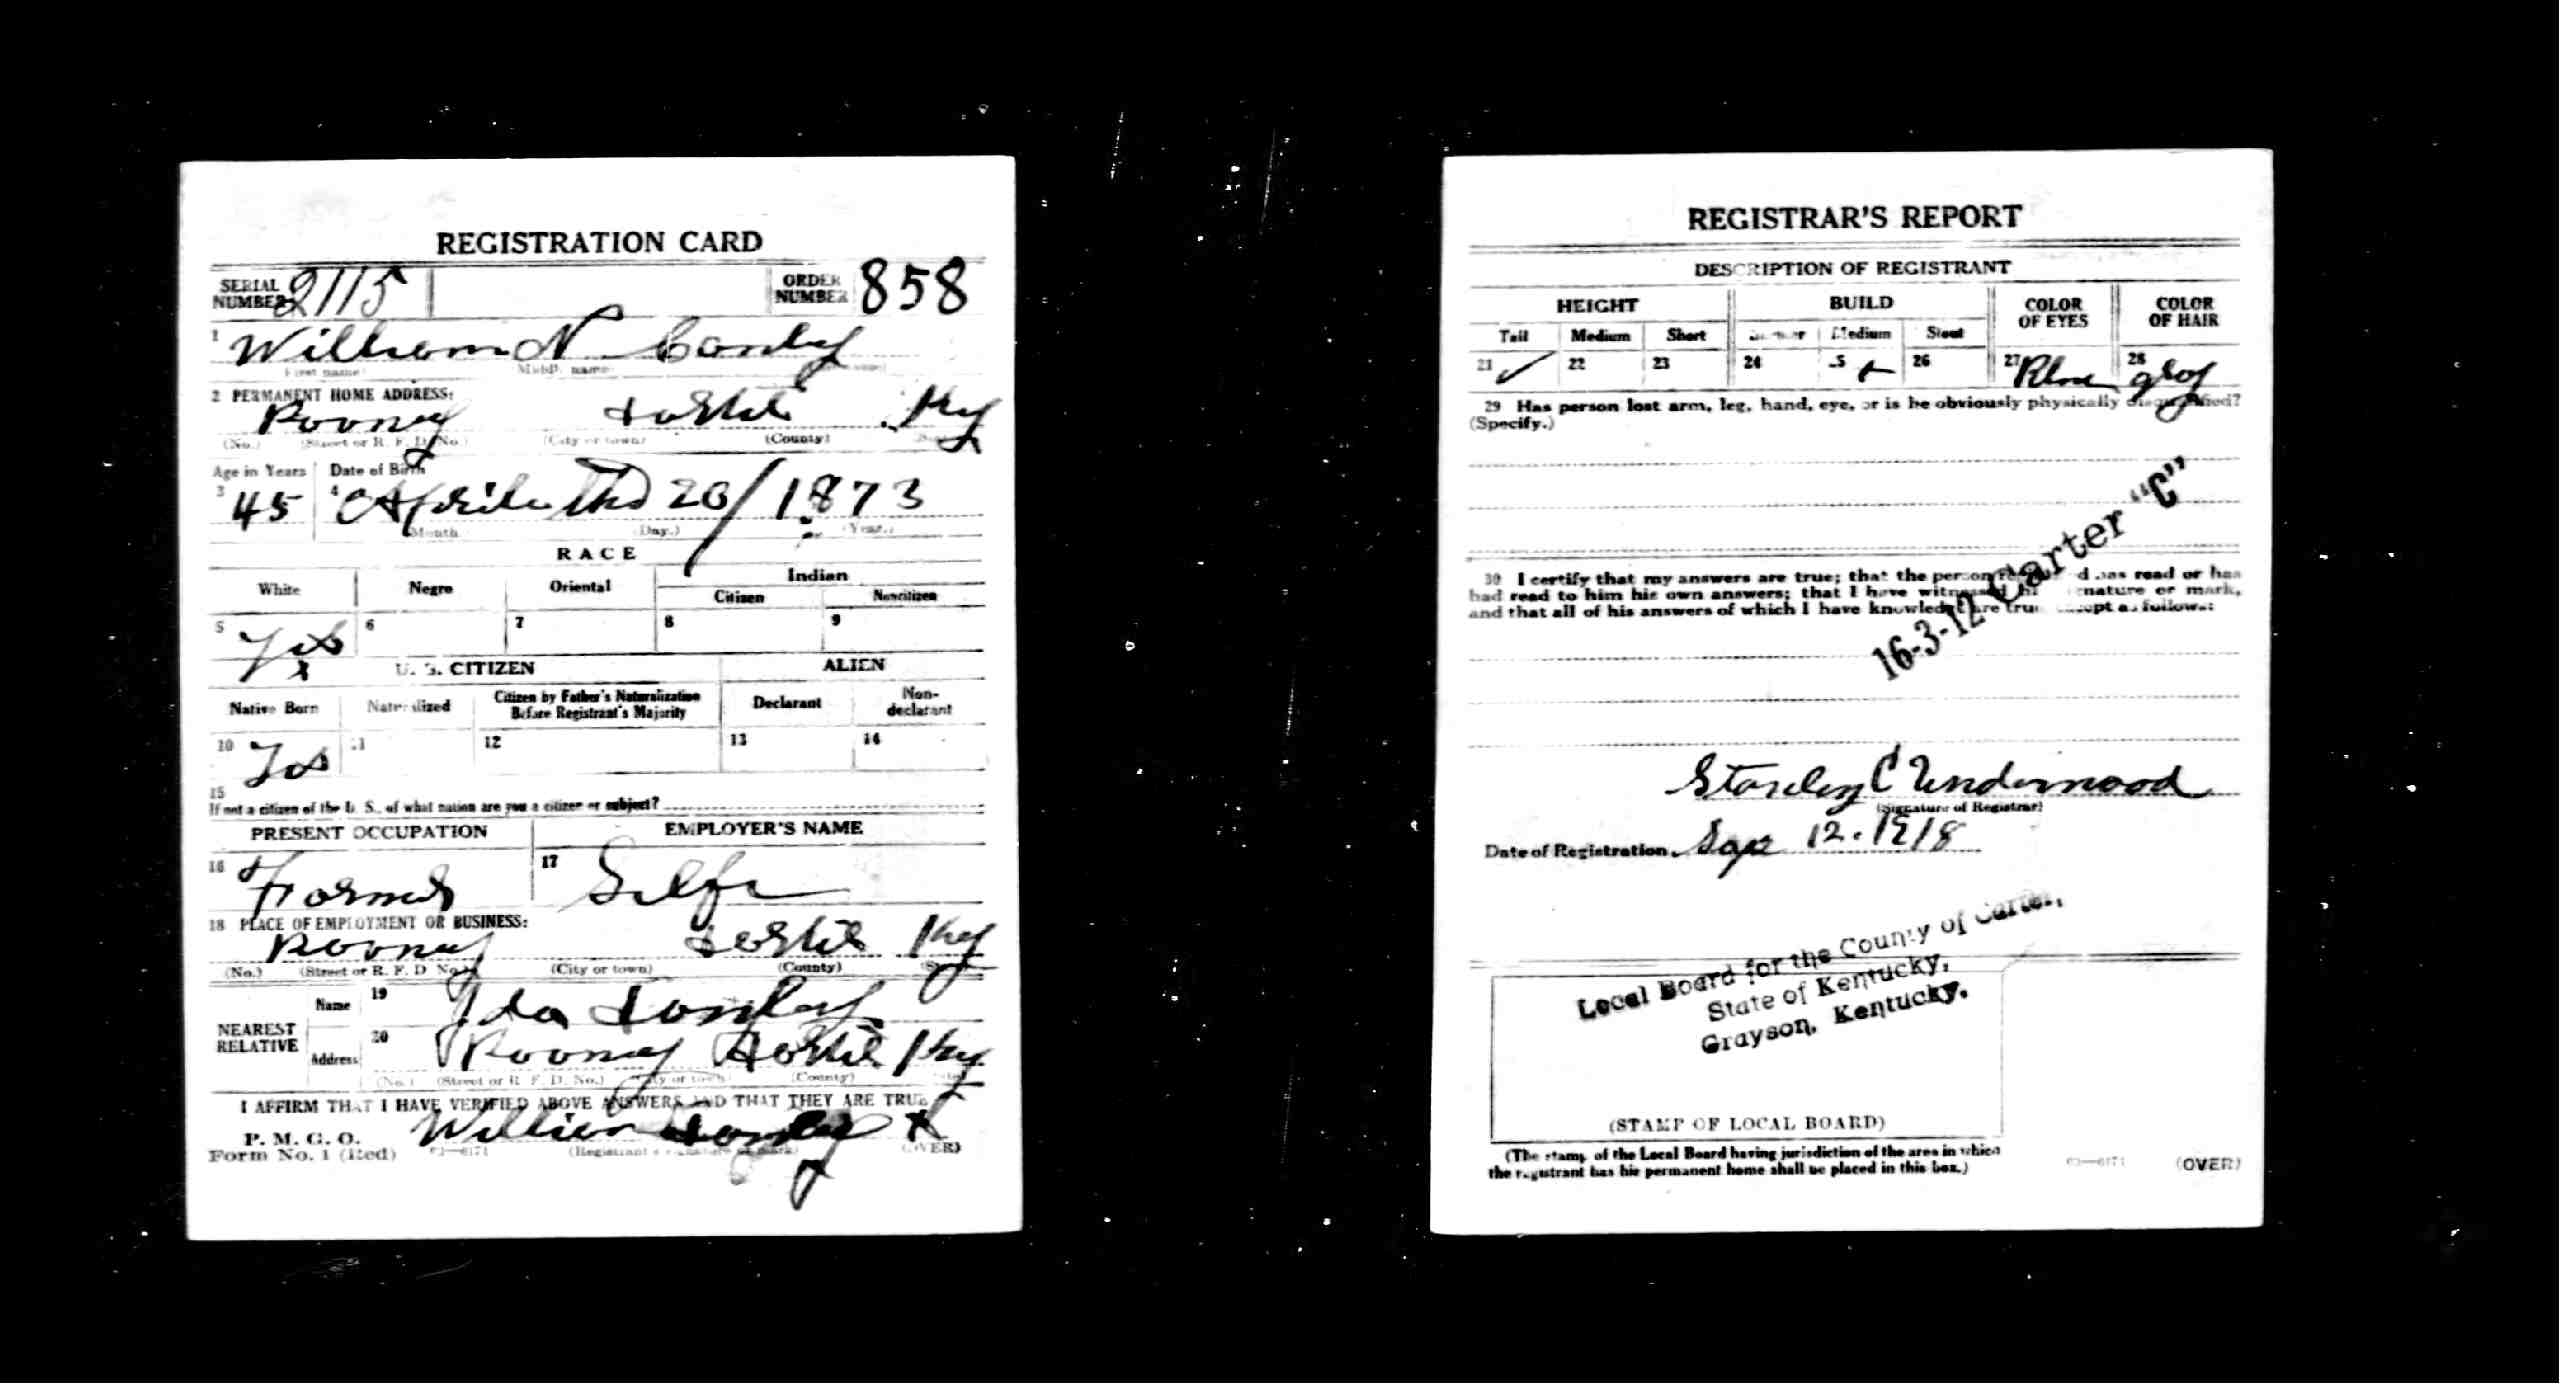 REGISTRATION CARD
SERIAL NUMBER 2115 ORDER NUMBER 858
1 William N Conley
First name Middle name
2 PERMANENT HOME ADDRESS:
Rooney Ky
(No.) (Street or R. F. D. No.) (City or town) (County)
Age in Years Date of Birth
3 45 4 April the 20/1873
Month (Day.) (Year.)
RACE
White Negro Oriental Indian
Citizen Noncitizen
5 Yes 6 7 8 9
x
U. S. CITIZEN ALIEN
Native Born Naturalized Citizen by Father's Naturalization Before Registrant's Majority Declarant Non-declarant
10 Yes 11 12 13 14
15
If not a citizen of the U. S., of what nation are you a citizen or subject?
PRESENT OCCUPATION EMPLOYER'S NAME
16 Farmer 17 Self
18 PLACE OF EMPLOYMENT OR BUSINESS:
Rooney Ky
(No.) (Street or R. F. D. No.) (City or town) (County)
NEAREST RELATIVE
Name 19 Ida Conley
Address 20 Rooney Ky
(No.) (Street or R. F. D. No.) (City or town) (County)
I AFFIRM THAT I HAVE VERIFIED ABOVE ANSWERS AND THAT THEY ARE TRUE
P. M. G. O.
Form No. 1 (Red) William Conley x
03—6171 (Registrant's signature or mark) (OVER)
REGISTRAR'S REPORT
DESCRIPTION OF REGISTRANT
HEIGHT BUILD COLOR OF EYES COLOR OF HAIR
Tall Medium Short Slender Medium Stout
21 ✓ 22 23 24 25 26 27 Blue 28
29 Has person lost arm, leg, hand, eye, or is he obviously physically disqualified?
(Specify.)
16-3-12 Carter "C"
30 I certify that my answers are true; that the person registered has read or has
had read to him his own answers; that I have witnessed his signature or mark,
and that all of his answers of which I have knowledge are true, except as follows:
Stanley C Underwood
(Signature of Registrar)
Date of Registration Sep 12.1918
Local Board for the County of Carter,
State of Kentucky,
Grayson, Kentucky.
(STAMP OF LOCAL BOARD)
(The stamp of the Local Board having jurisdiction of the area in which
the registrant has his permanent home shall be placed in this box.)
03—6171 (OVER)